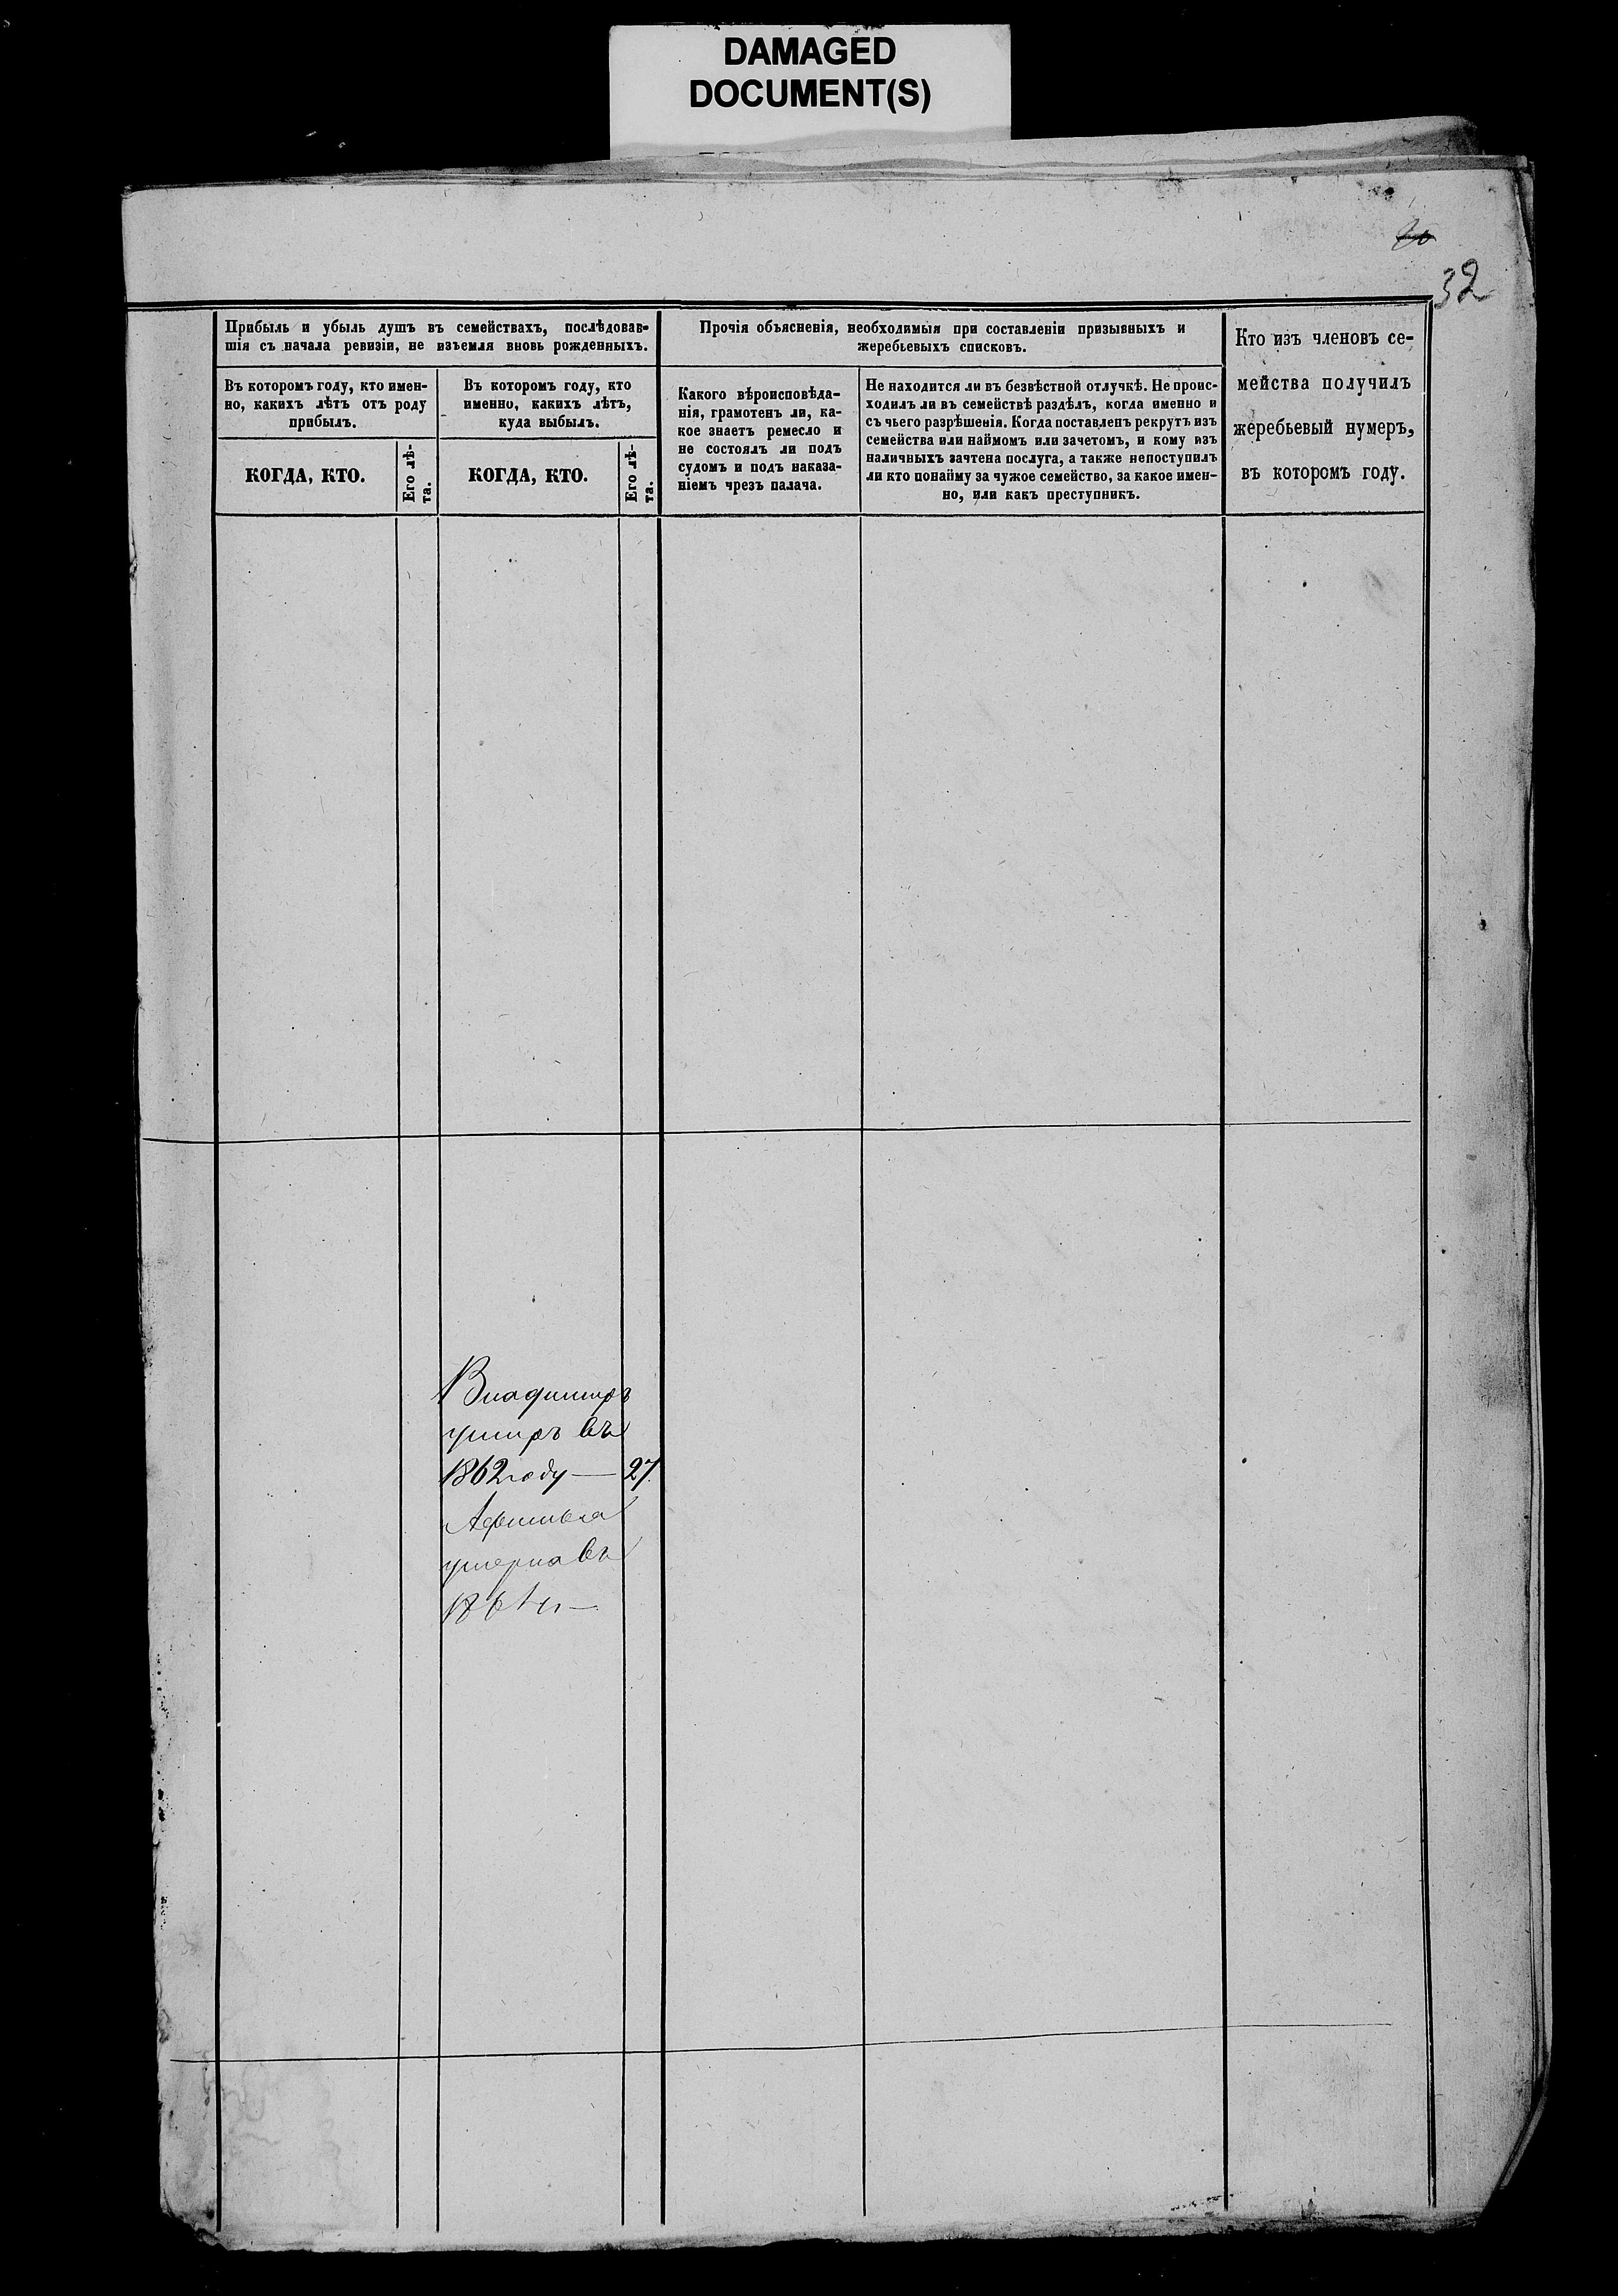 DAMAGED
DOCUMENT(S)
32
Прибыль и убыль душъ въ семействахъ, послѣдовав-
шія съ начала ревизіи, не взъемля вновь рожденныхъ.
Прочія объясненія, необходимыя при составленіи призывныхъ и
жеребьевыхъ списковъ.
Кто изъ членовъ се-
мейства получилъ
жеребьевый нумеръ,
въ которомъ году.
Въ которомъ году, кто имен-
но, какихъ лѣтъ отъ роду
прибылъ.
Въ которомъ году, кто
именно, какихъ лѣтъ,
куда выбылъ.
Какого вѣроисповѣда-
нія, грамотенъ ли, ка-
кое знаетъ ремесло и
не состоялъ ли подъ
судомъ и подъ наказа-
ніемъ чрезъ палача.
Не находится ли въ безвѣстной отлучкѣ. Не проис-
ходилъ ли въ семействѣ раздѣлъ, когда именно и
съ чьего разрѣшенія. Когда поставленъ рекрутъ изъ
семейства или наймомъ или зачетомъ, и кому изъ
наличныхъ зачтена послуга, а также непоступилъ
ли кто понайму за чужое семейство, за какое имен-
но, или какъ преступникъ.
КОГДА, КТО.
Его лѣ-
та.
КОГДА, КТО.
Его лѣ-
та.
Владиміръ
умиръ въ
1862 году — 27.
умерла въ